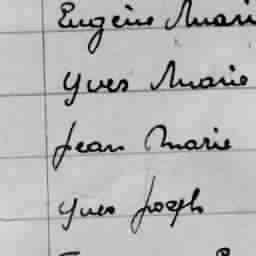 Eugène Mari
Yves Marie
Jean Marie
Yves Joseph